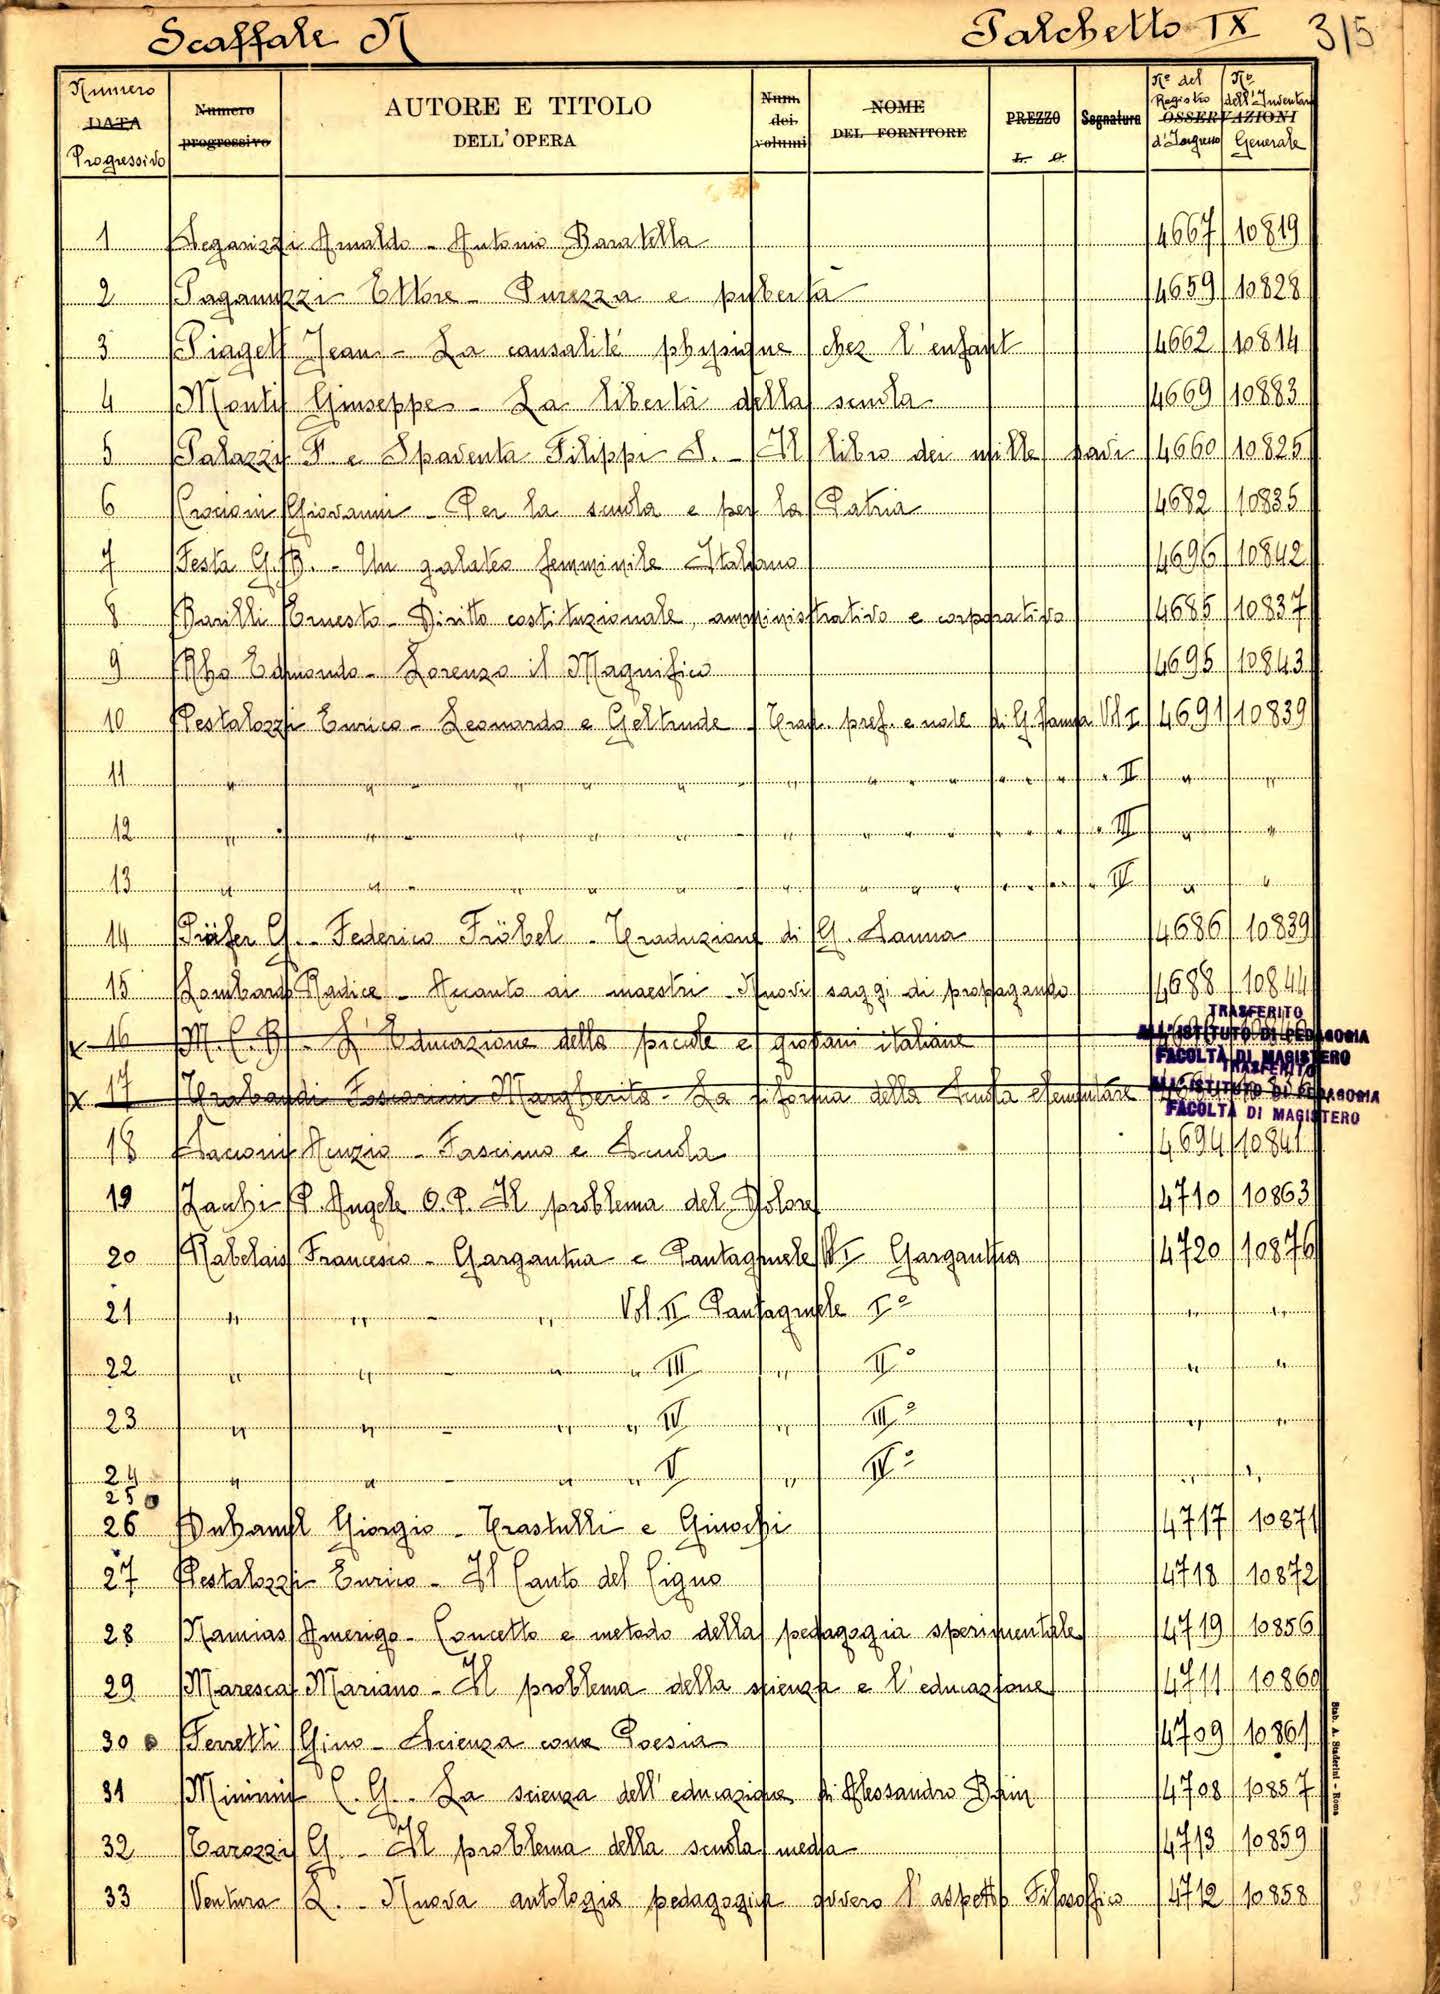 Scaffale N Palchetto IX 315
Numero DATA Progressivo Numero progressivo AUTORE E TITOLO DELL'OPERA Num. dei volumi NOME DEL FORNITORE PREZZO L. C. Segnatura OSSERVAZIONI No del Registro d'Ingresso No dell'Inventario Generale
1 Segarizzi Arnaldo - Antonio Baratella 4667 10819
2 Paganuzzi Ettore - Purezza e pubertà 4659 10828
3 Piaget Jean - La causalité physique chez l'enfant 4662 10814
4 Monti Giuseppe - La libertà della scuola 4669 10883
5 Palazzi F. e Spaventa Filippi S. - Il libro dei mille savi 4660 10825
6 Crocioni Giovanni - Per la scuola e per la Patria 4682 10835
7 Festa G. B. - Un galateo femminile Italiano 4696 10842
8 Barilli Ernesto - Diritto costituzionale, amministrativo e corporativo 4685 10837
9 Rho Edmondo - Lorenzo il Magnifico 4695 10843
10 Pestalozzi Enrico - Leonardo e Geltrude - Trad. pref. e note di G. Sanna Vol I 4691 10839
11 " " - " " " - " " " " " " " " II " "
12 " " - " " " - " " " " " " " " III " "
13 " " - " " " - " " " " " " " " IV " "
14 Prüfer G. - Federico Fröbel - Traduzione di G. Sanna 4686 10839
15 Lombardo Radice - Accanto ai maestri - Nuovi saggi di propaganda 4688 10844
x 16 M. C. B. - L'Educazione delle piccole e giovani italiane
TRASFERITO
ALL'ISTITUTO DI PEDAGOGIA
FACOLTÀ DI MAGISTERO
x 17 Trabandi Foscarini Margherita - La riforma della Scuola elementare
TRASFERITO
ALL'ISTITUTO DI PEDAGOGIA
FACOLTÀ DI MAGISTERO
18 Sacconi Nunzio - Fascismo e Scuola 4694 10841
19 Zacchi P. Angelo O. P. Il problema del Dolore 4710 10863
20 Rabelais Francesco - Gargantua e Pantagruele Vol I Gargantua 4720 10876
21 " " - " Vol. II Pantagruele I° " "
22 " " - " " III " II° " "
23 " " - " " IV " III° " "
24 " " - " " V " IV° " "
25
26 Duhamel Giorgio - Trastulli e Ginochi 4717 10871
27 Pestalozzi Enrico - Il Canto del Cigno 4718 10872
28 Namias Amerigo - Concetto e metodo della pedagogia sperimentale 4719 10856
29 Maresca Mariano - Il problema della scienza e l'educazione 4711 10860
30 Ferretti Gino - Scienza come Poesia 4709 10861
31 Minimi C. G. - La scienza dell'educazione di Alessandro Bain 4708 10857
32 Tarozzi G. - Il problema della scuola media 4713 10859
33 Ventura L. - Nuova antologia pedagogica ovvero l'aspetto Filosofico 4712 10858
Stab. A. Staderini - Roma